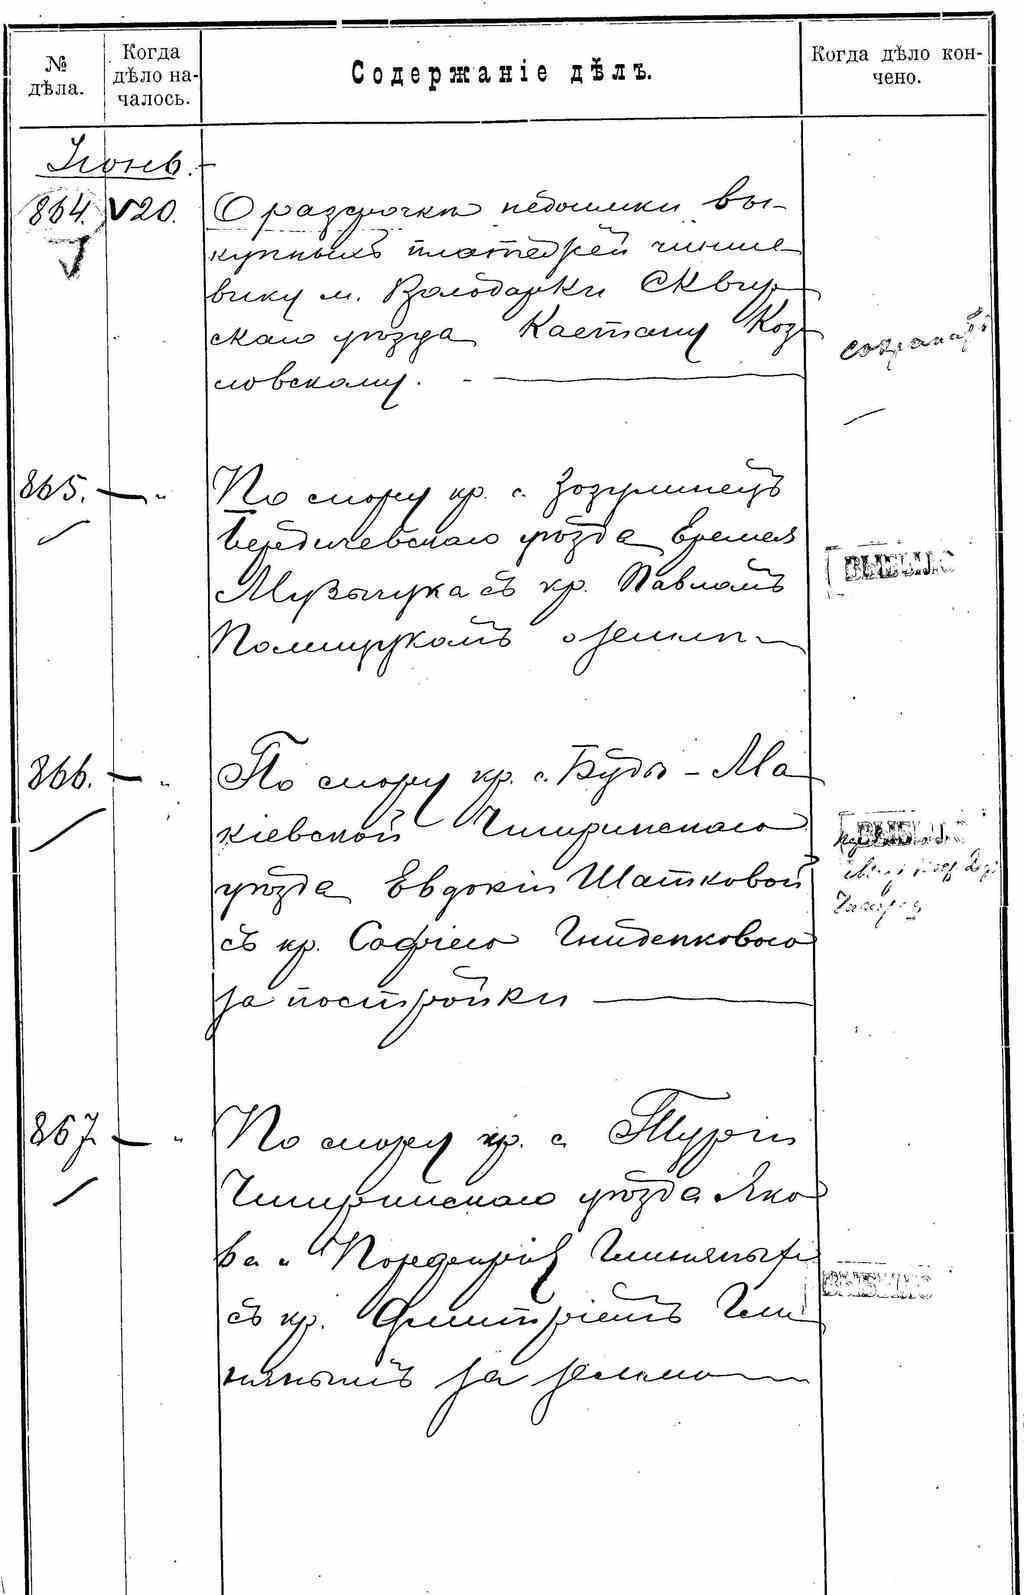 № дѣла.
Когда дѣло началось.
Содержаніе дѣлъ.
Когда дѣло кончено.
Іюнь.
864. V 20. О разсрочкѣ недоимки вы-
купныхъ платежей чинше
вику м. Володарки Сквир-
скаго уѣзда Каетану Коз-
ловскому.
865. — " По спору кр. с. Зозулинецъ
Бердичевскаго уѣзда Еремея
Музычука съ кр. Павломъ
Полищукомъ о землѣ
ВЫБЫЛО
866. — " По спору кр. с. Буды-Ма
кіевской Чигиринскаго
уѣзда Евдокіи Шатковой
съ кр. Софіею Гниденковою
за постройки
ВЫБЫЛО
867. — " По спору кр. с. Турги
Чигиринскаго уѣзда Яко
ва и Порфирія
съ кр. Дмитріемъ Гли
нянымъ за землю
ВЫБЫЛО